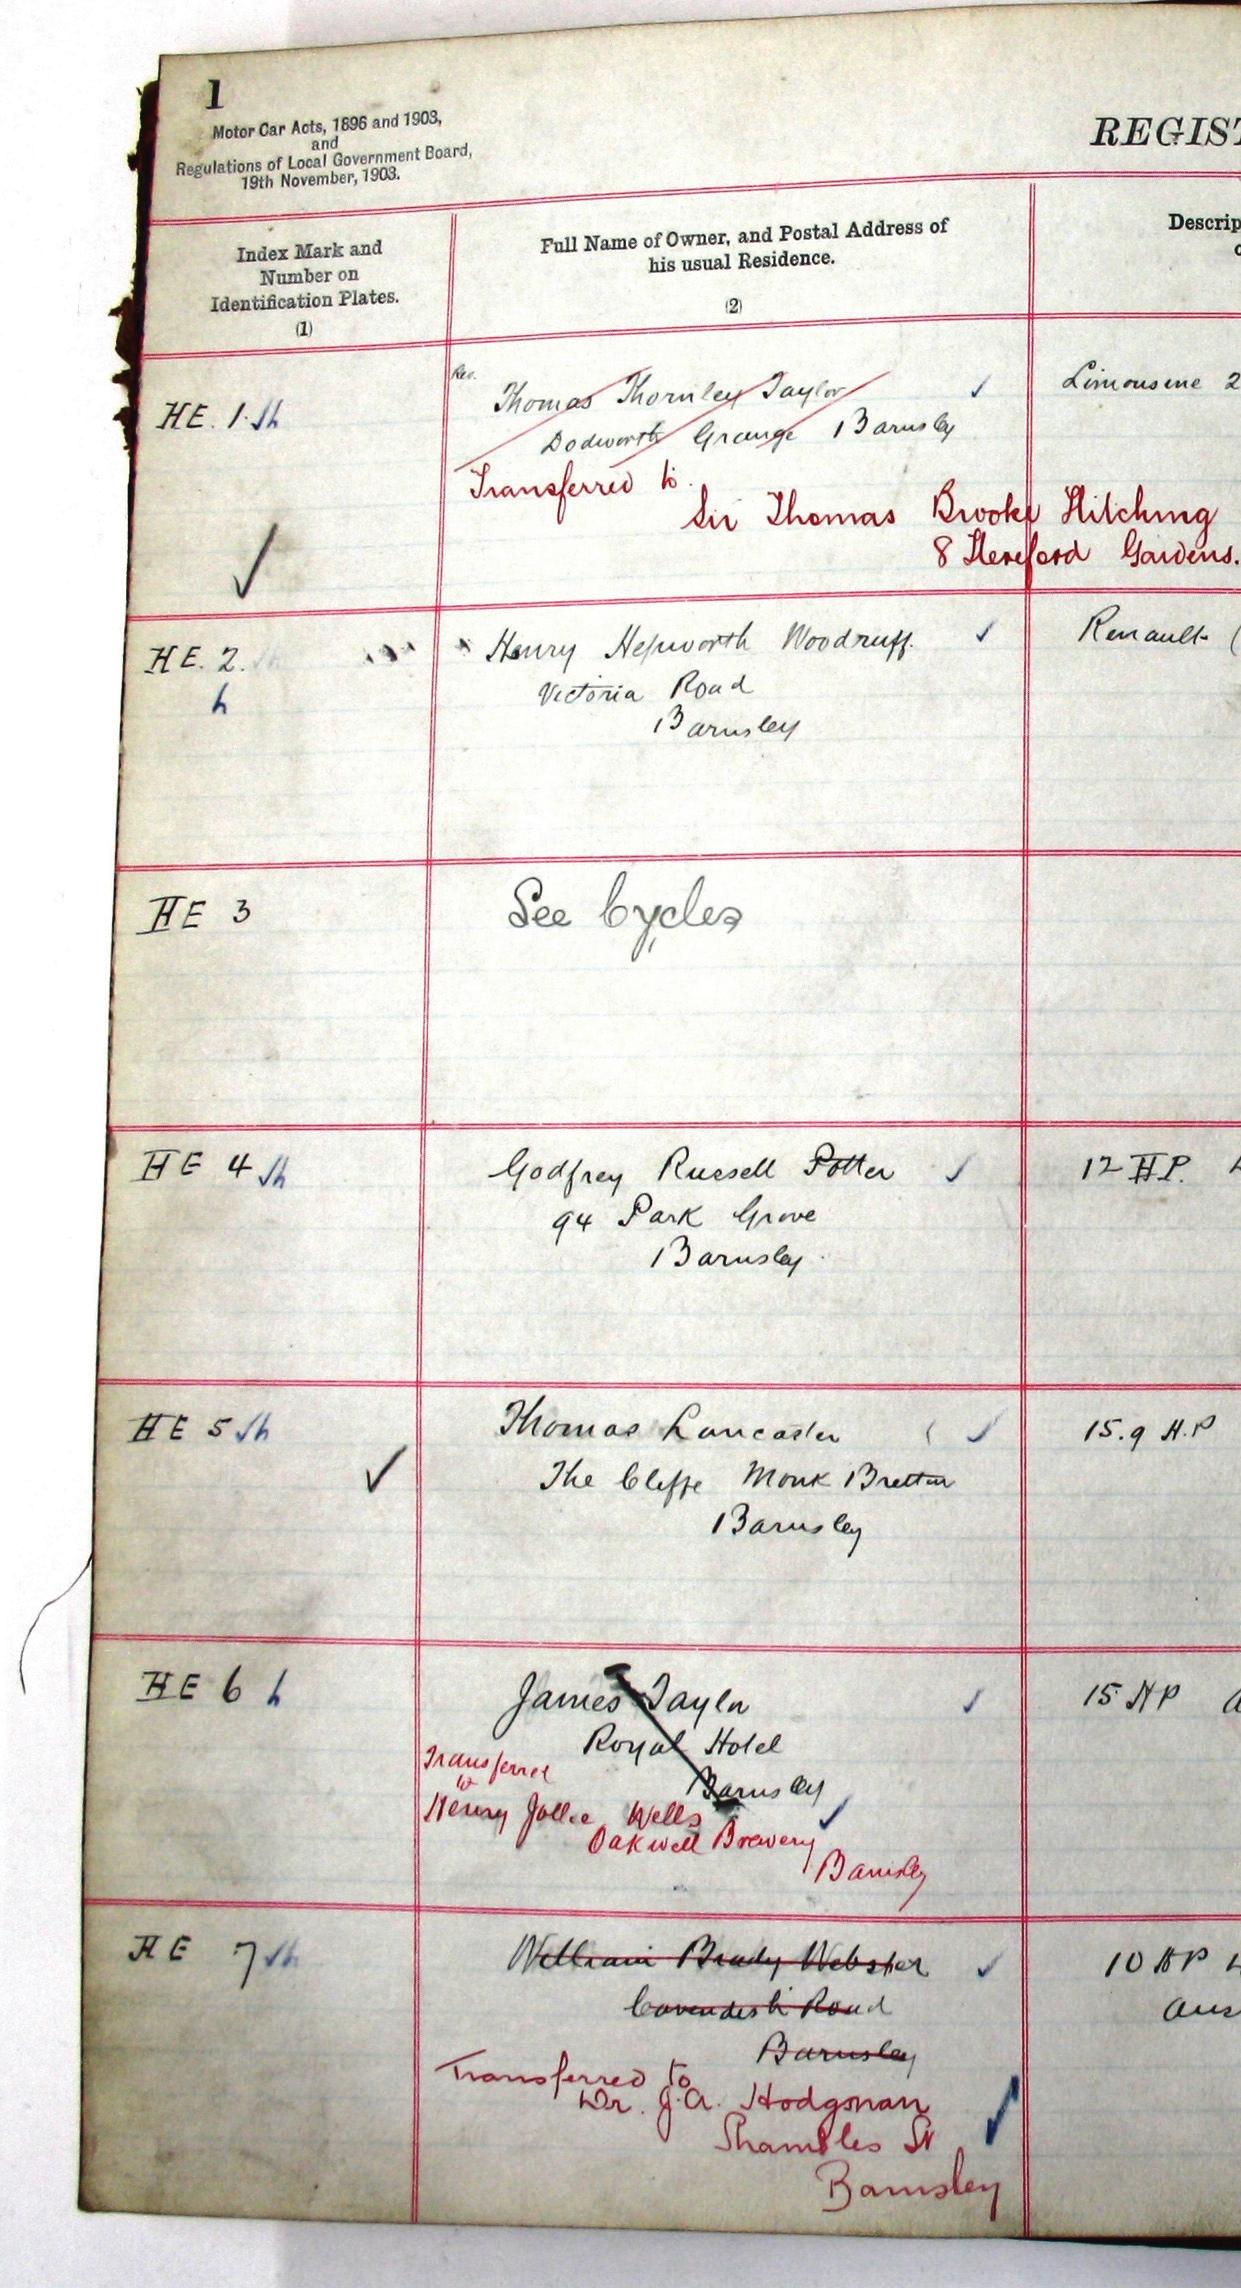 1
Motor Car Acts, 1896 and 1903,
and
Regulations of Local Government Board,
19th November, 1903.
REGIST
Index Mark and
Number on
Identification Plates.
(1)
Full Name of Owner, and Postal Address of
his usual Residence.
(2)
Descrip
o
HE. 1.
Rev.
Thomas Thornley Taylor
Limousine 2
Dodworth Grange Barnsley
Transferred to
Sir Thomas Brooke Hitching
8 Hereford Gardens.
HE. 2.
h
Henry Hepworth Woodruff.
Renault (
Victoria Road
Barnsley
HE 3
See Cycles
HE 4
Godfrey Russell Potter
12 HP.
94 Park Grove
Barnsley
HE 5
Thomas Lancaster
15.9 H.P
The Cliffe Monk Bretton
Barnsley
HE 6 h
James Taylor
15 HP
Royal Hotel
Barnsley
Transferred
to
Henry Wells
Oakwell Brewery
Barnsley
HE 7
William Brady Webster
10 HP
Cavendish Road
Aus
Barnsley
Transferred to
Dr. J.A. Hodgman
Shambles St
Barnsley